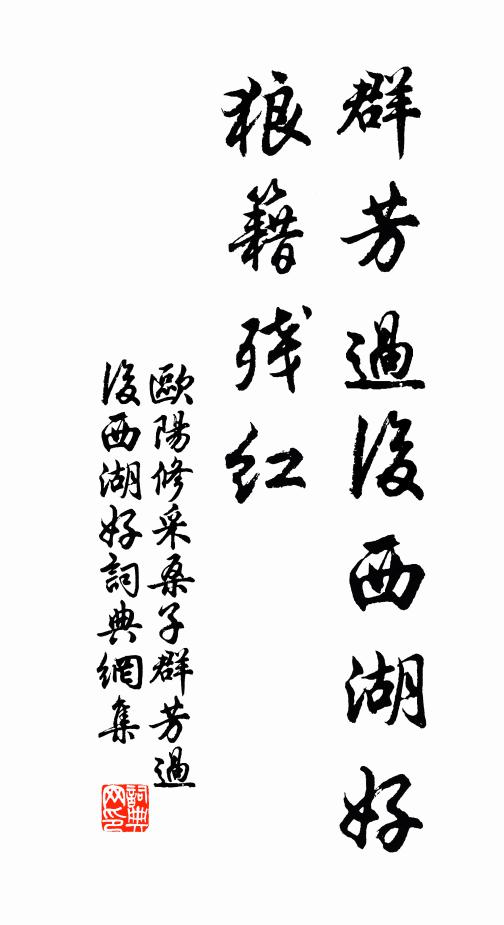 群芳過後西湖好
狼籍残红
歐陽修采桑子群芳過
後西湖好詞典網集
詞典网印